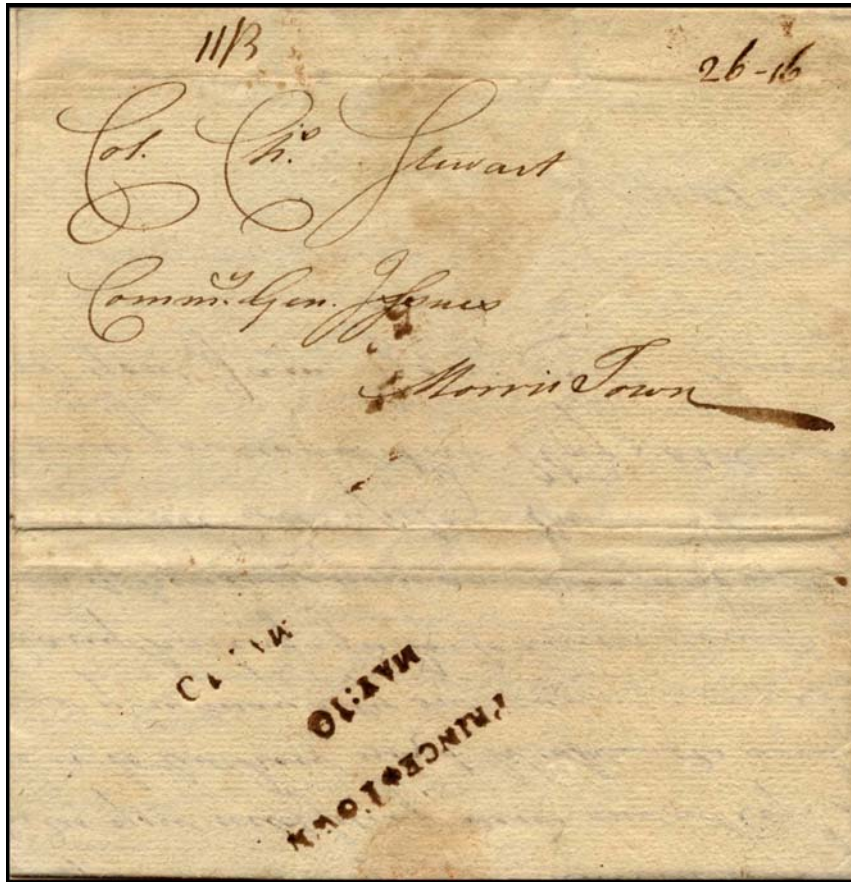 11/3
26-16
Col. Chs. Stewart
Commy. Gen. Issues
Morris Town
MAY:10
PRINCETOWN